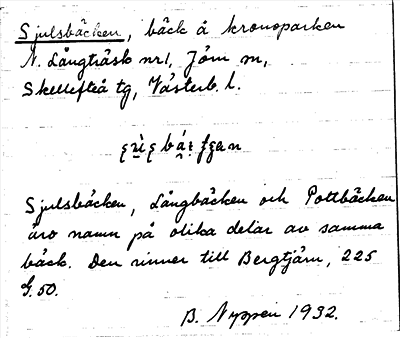 Sjulsbäcken, bäck å kronoparken
N. Långträsk nr1, Jörn sn,
Skellefteå tg, Västerb. l.
Sjulsbäcken, Långbäcken och Pottbäcken
äro namn på olika delar av samma
bäck. Den rinner till Bergtjärn, 225
G.50.
B. Nyppen 1932.